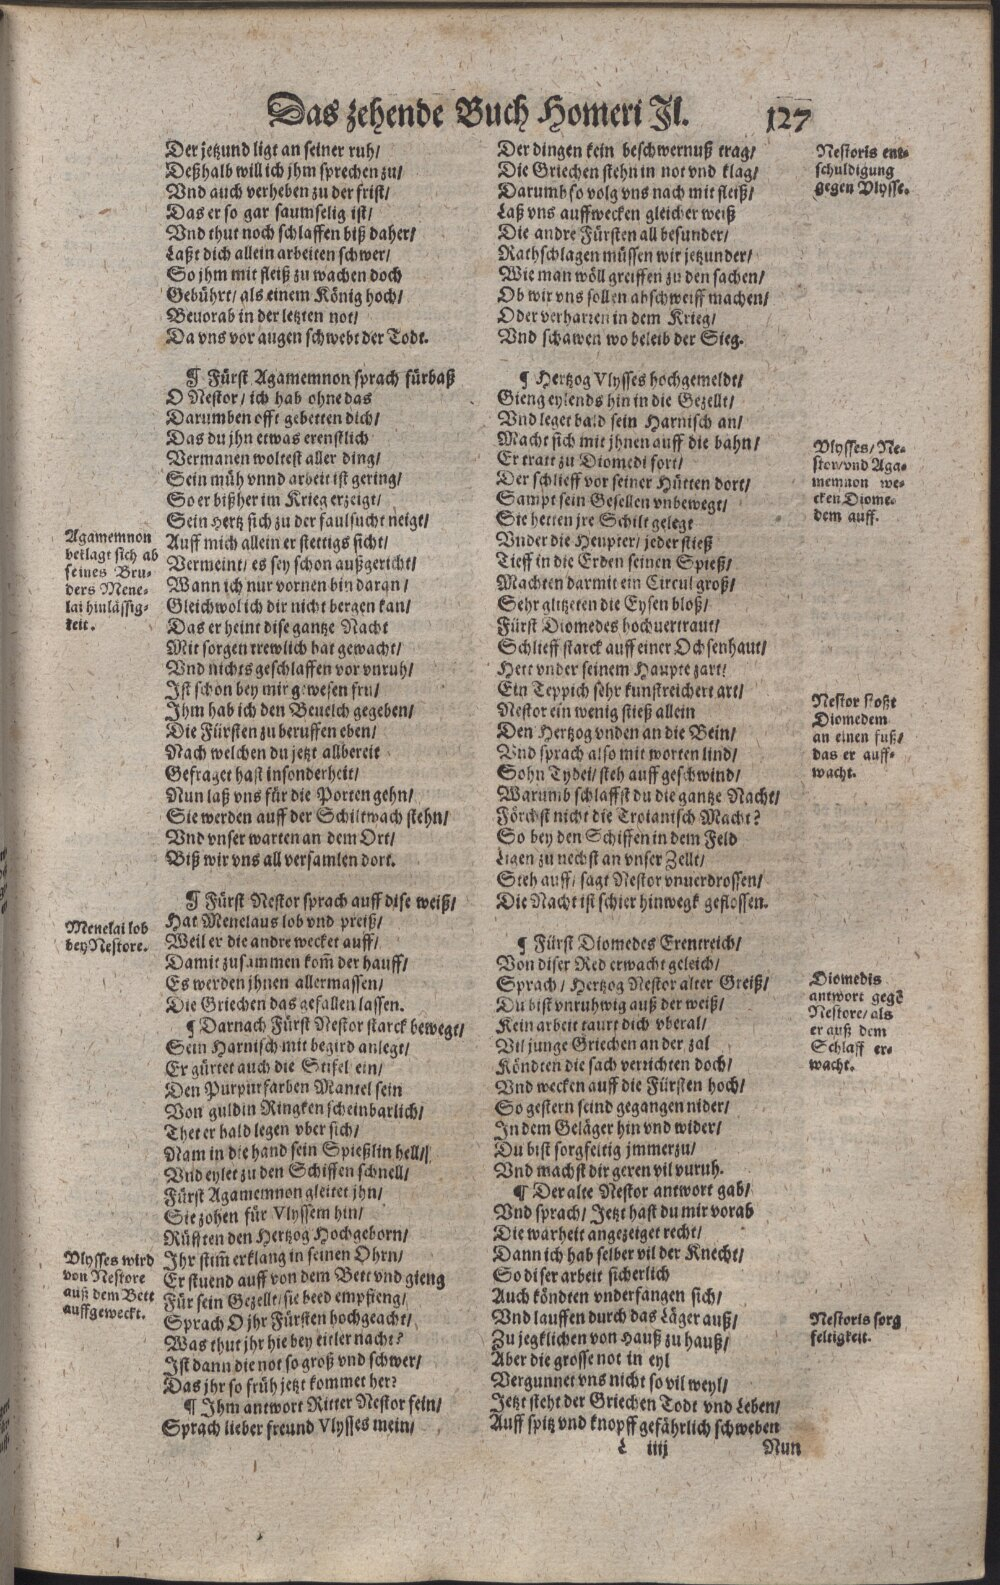 Das zehende Buch Homeri Il.
127
Der jetzund ligt an seiner ruh/
Deßhalb will ich jhm sprechen zu/
Vnd auch verheben zu der frist/
Das er so gar saumselig ist/
Vnd thut noch schlaffen biß daher/
Laßt dich allein arbeiten schwer/
So jhm mit fleiß zu wachen doch
Gebührt/ als einem König hoch/
Beuorab in der letzten not/
Da vns vor augen schwebt der Todt.
¶ Fürst Agamemnon sprach fürbaß
O Nestor/ ich hab ohne das
Darumben offt gebetten dich/
Das du jhn etwas erenstlich
Vermanen woltest aller ding/
Sein müh vnnd arbeit ist gering/
So er bißher im Krieg erzeigt/
Sein Hertz sich zu der faulsucht neigt/
Auff mich allein er stettigs sicht/
Vermeint/ es sey schon außgericht/
Wann ich nur vornen bin daran/
Gleichwol ich dir nicht bergen kan/
Das er heint dise gantze Nacht
Mit sorgen trewlich hat gewacht/
Vnd nichts geschlaffen vor vnruh/
Ist schon bey mir gewesen fru/
Ihm hab ich den Beuelch gegeben/
Die Fürsten zu beruffen eben/
Nach welchen du jetzt allbereit
Gefraget hast insonderheit/
Nun laß vns für die Porten gehn/
Sie werden auff der Schiltwach stehn/
Vnd vnser warten an dem Ort/
Biß wir vns all versamlen dort.
¶ Fürst Nestor sprach auff dise weiß/
Hat Menelaus lob vnd preiß/
Weil er die andre wecket auff/
Damit zusammen kom̃ der hauff/
Es werden jhnen allermassen/
Die Griechen das gefallen lassen.
¶ Darnach Fürst Nestor starck bewegt/
Sein Harnisch mit begird anlegt/
Er gürtet auch die Stifel ein/
Den Purpurfarben Mantel sein
Von guldin Ringken scheinbarlich/
Thet er bald legen vber sich/
Nam in die hand sein Spießlin hell/
Vnd eylet zu den Schiffen schnell/
Fürst Agamemnon gleitet jhn/
Sie zohen für Vlyssem hin/
Rüfften den Hertzog Hochgeborn/
Ihr stim̃ erklang in seinen Ohrn/
Er stuend auff von dem Bett vnd gieng
Für sein Gezellt/ sie beed empfieng/
Sprach O jhr Fürsten hochgeacht/
Was thut jhr hie bey eitler nacht?
Ist dann die not so groß vnd schwer/
Das jhr so früh jetzt kommet her?
¶ Ihm antwort Ritter Nestor fein/
Sprach lieber freund Vlysses mein/
Agamemnon
beklagt sich ab
seines Bru-
ders Mene-
lai hinlässig-
keit.
Menelai lob
bey Nestore.
Vlysses wird
von Nestore
auß dem Bett
auffgeweckt.
Der dingen kein beschwernuß trag/
Die Griechen stehn in not vnd klag/
Darumb so volg vns nach mit fleiß/
Laß vns auffwecken gleicher weiß
Die andre Fürsten all besunder/
Rathschlagen müssen wir jetzunder/
Wie man wöll greiffen zu den sachen/
Ob wir vns sollen abschweiff machen/
Oder verharren in dem Krieg/
Vnd schawen wo beleib der Sieg.
¶ Hertzog Vlysses hochgemeldt/
Gieng eylends hin in die Gezellt/
Vnd leget bald sein Harnisch an/
Macht sich mit jhnen auff die bahn/
Er tratt zu Diomedi fort/
Der schlieff vor seiner Hütten dort/
Sampt sein Gesellen vnbewegt/
Sie hetten jre Schilt gelegt
Vnder die Heupter/ jeder stieß
Tieff in die Erden seinen Spieß/
Machten darmit ein Circul groß/
Sehr glitzeten die Eysen bloß/
Fürst Diomedes hochuertraut/
Schlieff starck auff einer Ochsenhaut/
Hett vnder seinem Haupte zart/
Ein Teppich sehr kunstreicher art/
Nestor ein wenig stieß allein
Den Hertzog vnden an die Bein/
Vnd sprach also mit worten lind/
Sohn Tydei/ steh auff geschwind/
Warumb schlaffst du die gantze Nacht/
Förchst nicht die Troianisch Macht?
So bey den Schiffen in dem Feld
Ligen zu nechst an vnser Zellt/
Steh auff/ sagt Nestor vnuerdrossen/
Die Nacht ist schier hinwegk geflossen.
¶ Fürst Diomedes Erentreich/
Von diser Red erwacht geleich/
Sprach/ Hertzog Nestor alter Greiß/
Du bist vnruhwig auß der weiß/
Kein arbeit taurt dich vberal/
Vil junge Griechen an der zal
Köndten die sach verrichten doch/
Vnd wecken auff die Fürsten hoch/
So gestern seind gegangen nider/
In dem Geläger hin vnd wider/
Du bist sorgfeltig jmmerzu/
Vnd machst dir geren vil vnruh.
¶ Der alte Nestor antwort gab/
Vnd sprach/ Jetzt hast du mir vorab
Die warheit angezeiget recht/
Dann ich hab selber vil der Knecht/
So diser arbeit sicherlich
Auch köndten vnderfangen sich/
Vnd lauffen durch das Läger auß/
Zu jegklichen von Hauß zu hauß/
Aber die grosse not in eyl
Vergunnet vns nicht so vil weyl/
Jetzt steht der Griechen Todt vnd Leben/
Auff spitz vnd knopff gefährlich schweben
Nestoris ent-
schuldigung
gegen Vlysse.
Vlysses/ Ne-
stor/ vnd Aga-
memnon we-
cken Diome-
dem auff.
Nestor stoßt
Diomedem
an einen fuß/
das er auff-
wacht.
Diomedis
antwort gegē
Nestore/ als
er auß dem
Schlaff er-
wacht.
Nestoris sorg
feltigkeit.
L iiij
Nun